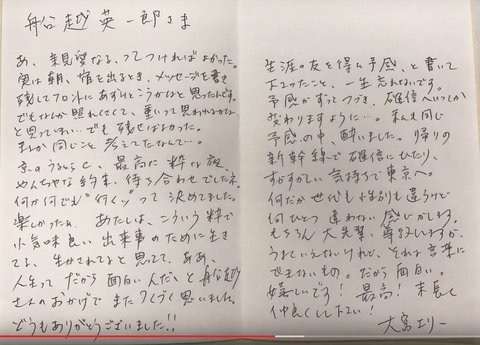 船越英一郎さま
あ、親愛なる、ってつければよかった。
実は朝、宿を出るとき、メッセージを書き
残してフロントにあずけとこうかなと思ったんです。
でもなんか照れくさくて、重いって思われるかな
と思ってしまい…でも残せばよかった。
まさか同じこと考えてたなんて…。
最高に粋な夜、
約束、待ち合わせでしたネ。
何が何でも"行くゾ"って決めてました。
楽しかったぁ、あたしは、こういう粋で
小気味良い出来事のために生き
てる、生かされてると思ってて、ああ、
人生ってだから面白いんだ、と船越
さんのおかげでまたつくづく思いました。
どうもありがとうございました!!
生涯の友を得た予感、と書いて
下さったこと、一生忘れないです。
予感がずっとつづき、確信へいつしか
変わりますように…。私も同じ
予感の中、酔いました。帰りの
新幹線で確信にひたり、
すがすがしい気持ちで東京へ。
何だか世代も性別も違うけど
何ひとつ違わない感じがします。
もちろん大先輩、尊敬しますが、
うまくいえないけれど、それは言葉に
できないもの。だから面白い。
嬉しいです!最高!末長く
仲良くして下さい!
大宮エリー